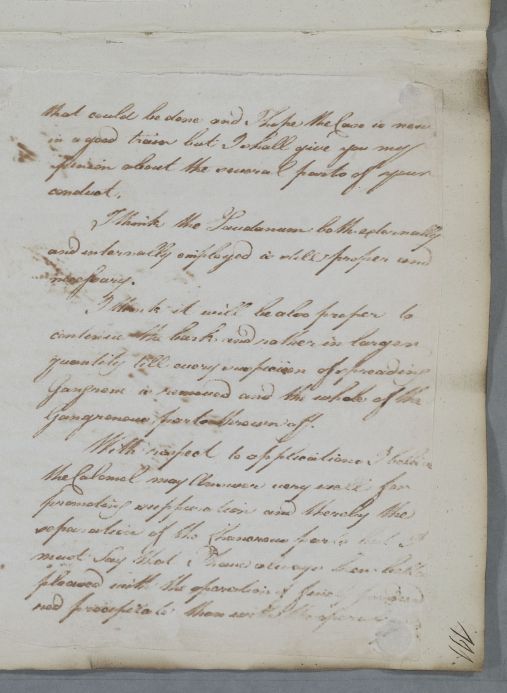 that could be done and I hope the Case is now
in a good train but I shall give you my
opinion about the several parts of your
conduct.
I think the Laudanum both externally
and internally employed is still proper and
necessary.
I think it will be also proper to
continue the bark and rather in larger
quantity till every suspicion of spreading
Gangrene is removed and the whole of the
Gangrenous parts thrown off.
With respect to applications I believe
the Calomel may answer very well for
promoting suppuration and thereby the
separation of the parts but I
must say that I have always been better
pleased with the operation of finely powdered
red precipitate than with